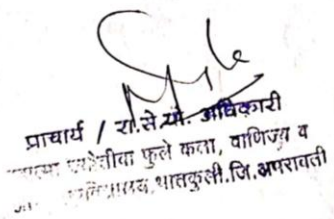 प्राचार्य / रा.से.यो. अधिकारी
फुले कला, वाणिज्य व
भातकुली.जि.अमरावती